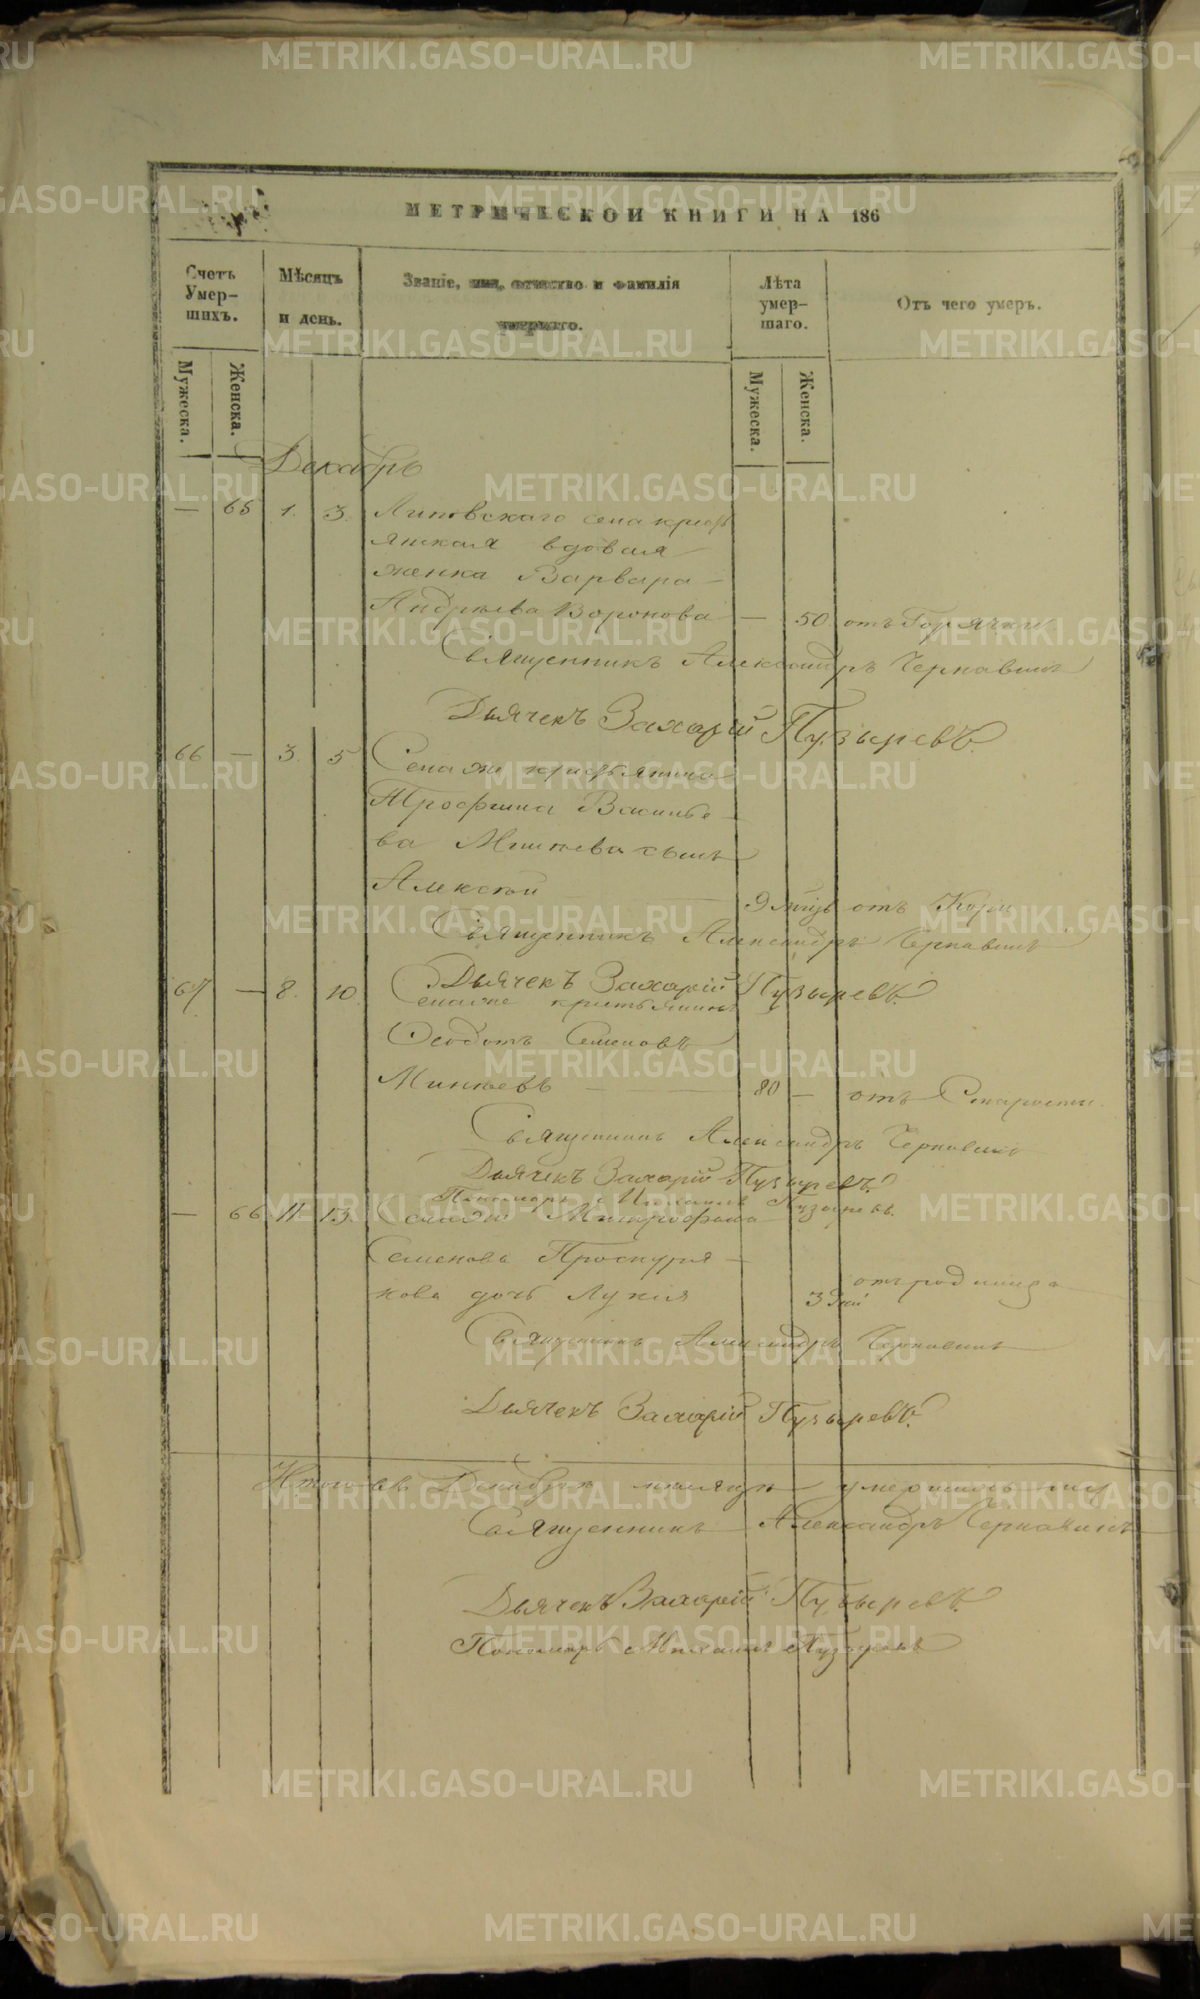 МЕТРИЧЕСКОЙ КНИГИ НА 186
Счетъ Умер-шихъ.
Мѣсяцъ и день.
Званіе, имя, отчество и фамилія умершаго.
Лѣта умер-шаго.
Отъ чего умеръ.
Мужеска.
Женска.
Мужеска.
Женска.
Декабрь
— 65 1. 3. Липовскаго села кресть
янская вдовая
женка Варвара
Андреева Воронова — 50 отъ Горячки
Священникъ Александръ Чернавинъ
Дьячекъ Захарій Пузыревъ.
66 — 3. 5. Села же крестьянина
Трофима Василье
ва Минеева сынъ
Алексѣй 9 отъ Кори
Священникъ Александръ Чернавинъ
Дьячекъ Захарій Пузыревъ.
67 — 8. 10. Села же крестьянинъ
Ѳеодотъ Семеновъ
Минѣевъ 80 — отъ Старости.
Священникъ Александръ Чернавинъ
Дьячекъ Захарій Пузыревъ.
Пономарь Михаилъ Пузыревъ.
— 66 11 13 Села же Митрофана
Семенова Проскуря
кова дочь Лукія 3 дней отъ родимца
Священникъ Александръ Чернавинъ
Дьячекъ Захарій Пузыревъ.
Итого въ Декабрѣ мѣсяцѣ умершихъ
Священникъ Александръ Чернавинъ
Дьячекъ Захарій Пузыревъ.
Пономарь Михаилъ Пузыревъ
METRIKI.GASO-URAL.RU